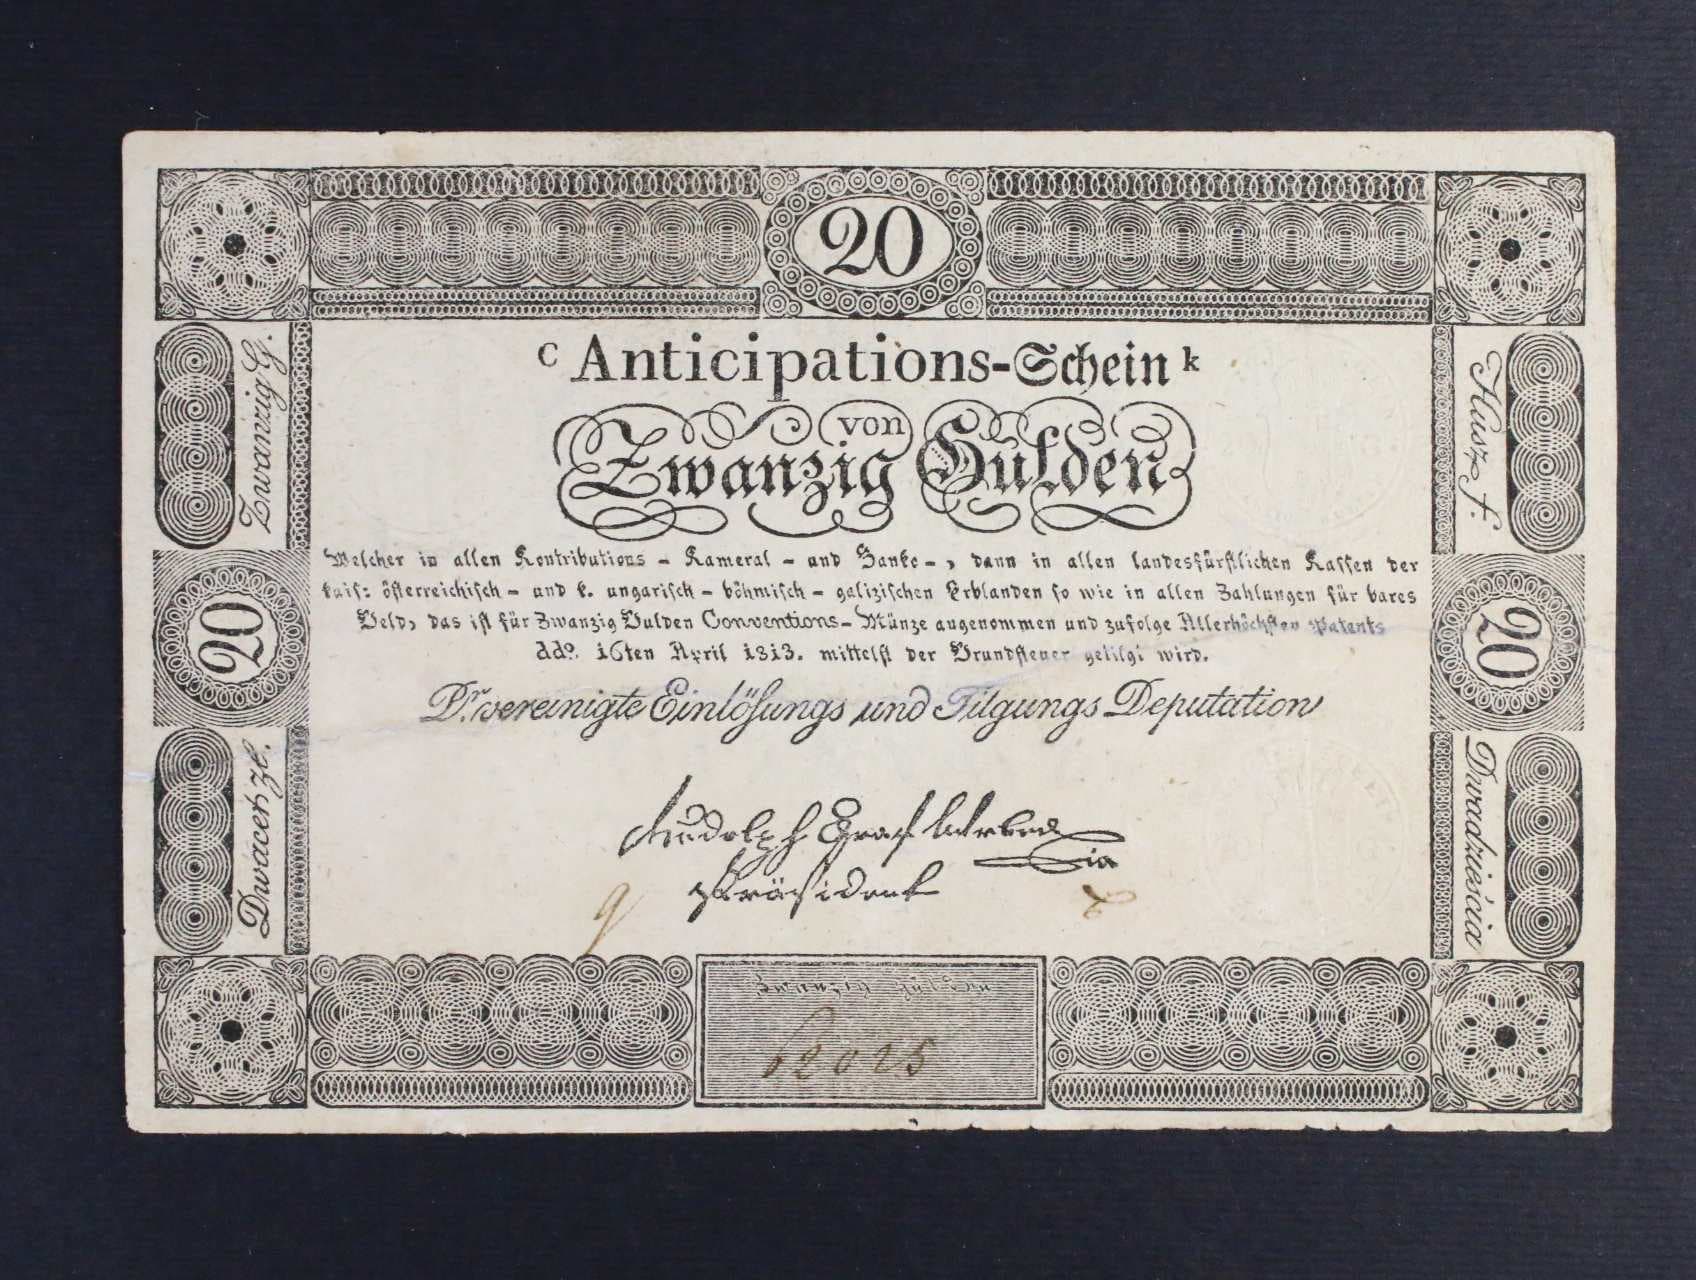 20
C Anticipations-Schein k
von
Zwanzig Gulden
Zwanzig G.
Husz f.
Welcher in allen Kontributions - Kameral - und Banko -, dann in allen landesfürstlichen Kassen der
kais: österreichisch - und k. ungarisch - böhmisch - galizischen Erblanden so wie in allen Zahlungen für bares
Geld, das ist für Zwanzig Gulden Conventions- Münze angenommen und zufolge Allerhöchsten Patents
ddo. 16ten April 1813. mittelst der Grundsteuer getilgt wird.
20
20
Pr. vereinigte Einlösungs und Tilgungs Deputation
Dwacet zl.
Dwadzieścia
Rudolph Graf
Präsident
Zwanzig Gulden
62025